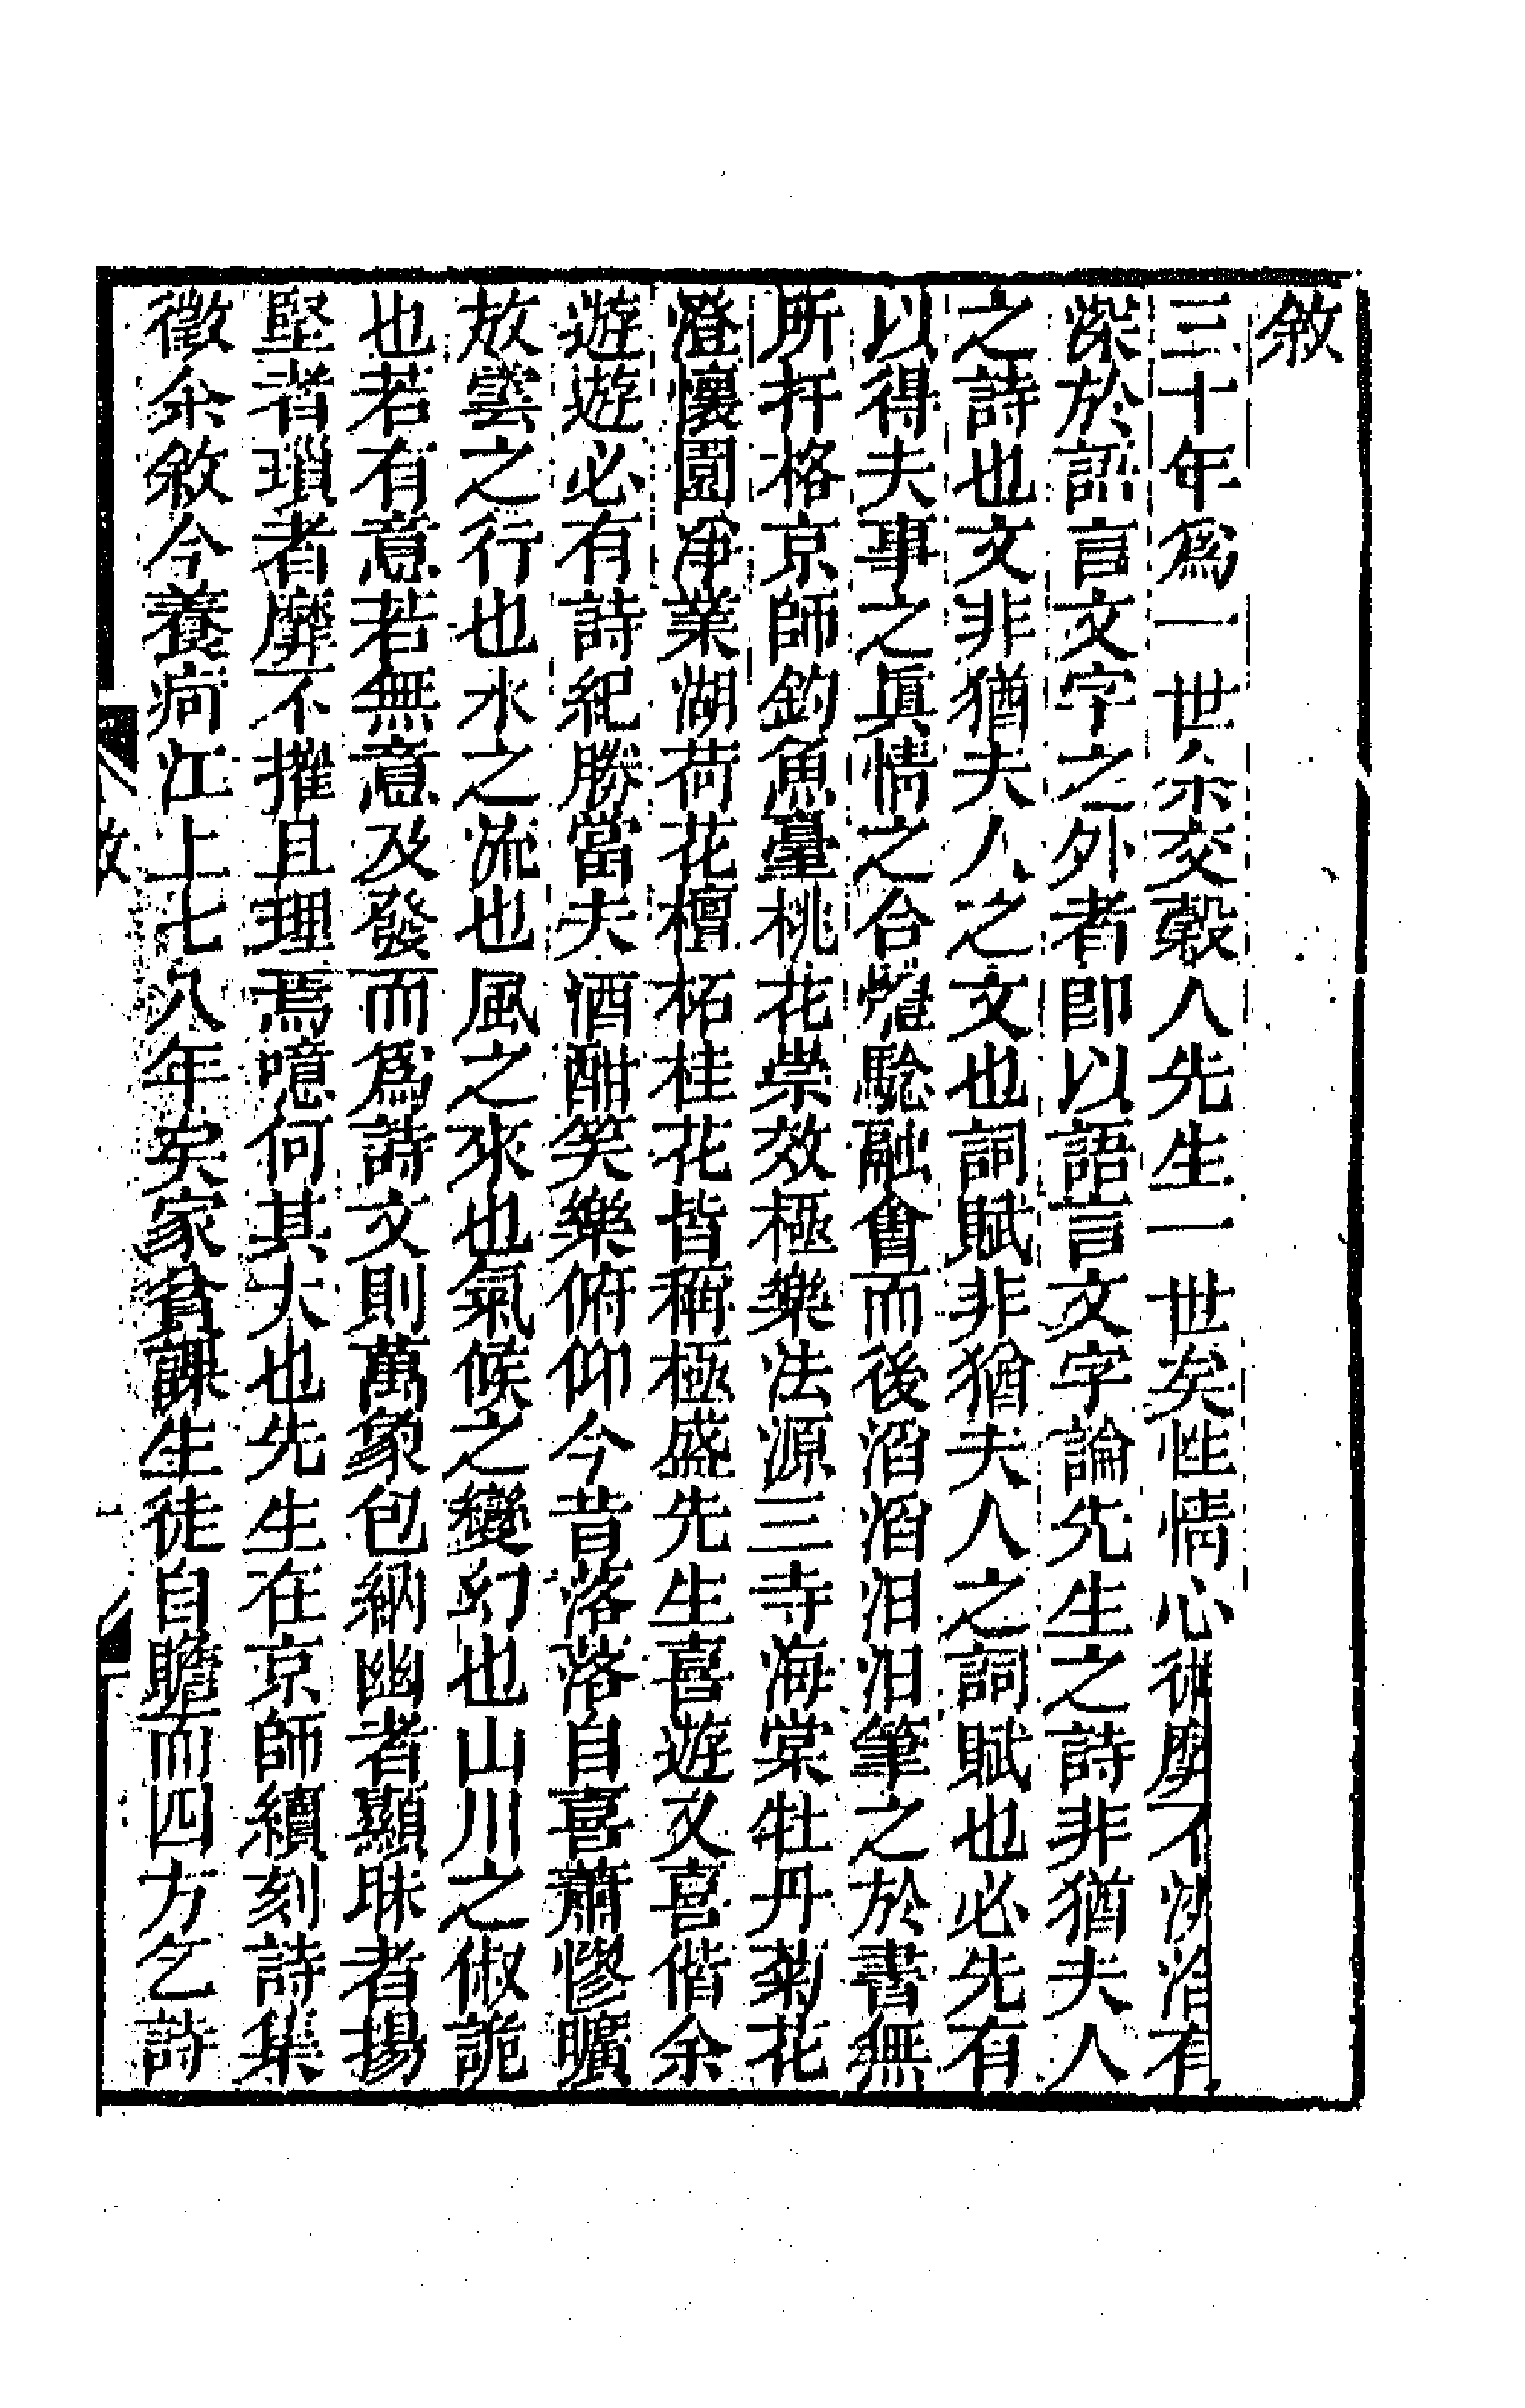 敘
三十年爲一世余交穀人先生一世矣性情心術靡不浹洽有
深於語言文字之外者卽以語言文字論先生之詩非猶夫人
之詩也文非猶夫人之文也詞賦非猶夫人之詞賦也必先有
以得夫事之眞情之合燿騐融會而後滔滔汩汩筆之於書無
所扞格京師釣魚臺桃花崇效極樂法源三寺海棠牡丹菊花
澄懷園净業湖荷花檀柘桂花皆稱極盛先生喜遊又喜偕余
遊遊必有詩紀勝當夫酒酣笑樂俯仰今昔落落自喜蕭慘曠
放雲之行也水之流也風之來也氣候之變幻也山川之俶詭
也若有意若無意及發而爲詩文則萬象包納幽者顯昧者揚
堅者瑣者靡不摧且理焉噫何其大也先生在京師續刻詩集
徵余敘今養疴江上七八年矣家貧課生徒自贍而四方乞詩
敘
一